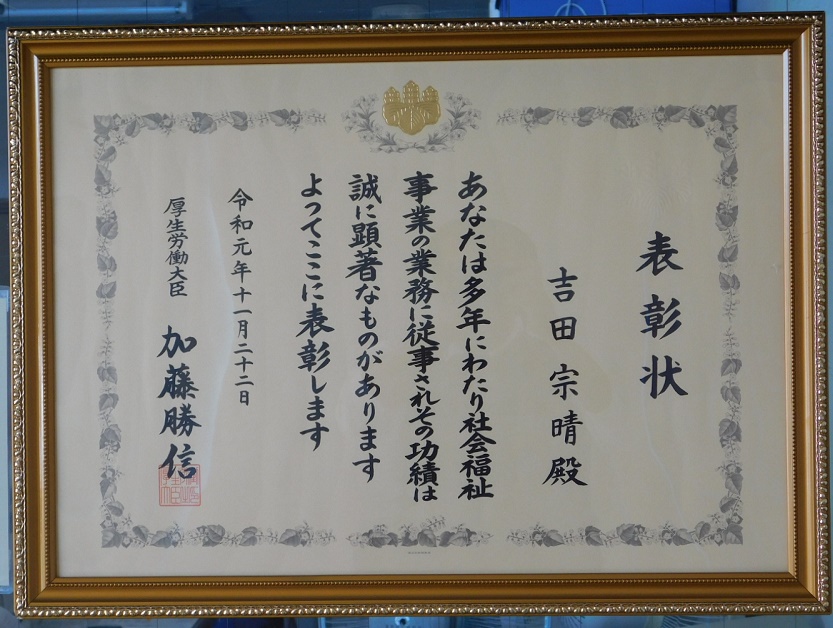 表彰状
吉田宗晴殿
あなたは多年にわたり社会福祉
事業の業務に従事されその功績は
誠に顕著なものがあります
よってここに表彰します
令和元年十一月二十二日
厚生労働大臣 加藤勝信